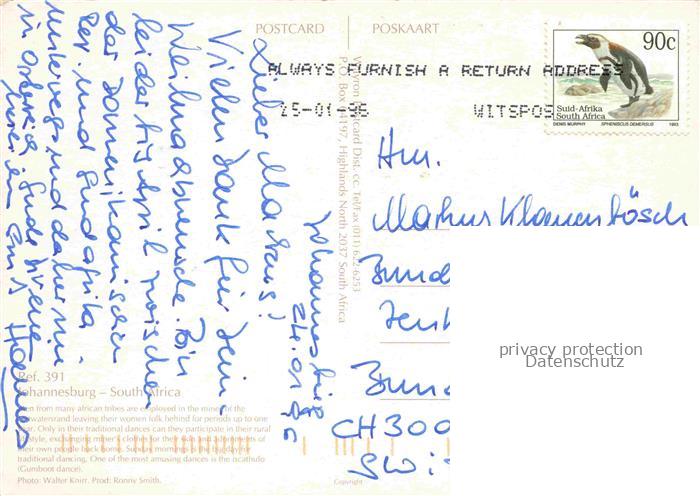 POSTCARD
POSKAART
90c
Suid-Afrika
South Africa
DENIS MURPHY SPHENISCUS DEMERSUS 1993
ALWAYS FURNISH A RETURN ADDRESS
25-01-96 WITSPOS
Johannesburg
24.01.96
Lieber Markus!
Vielen Dank für Deine
Weihnachtswünsche. Bin
leider bis April zwischen
der Dominikanischen
Rep. und Südafrika
unterwegs und daher nie
in
Hannes
Hrn.
Markus
Bund
Zent
Bund
CH 300
Dist. cc. Tel/Fax (011) 622-6253
P.O. Box 4197, Highlands North 2037 South Africa
privacy protection
Datenschutz
Ref. 391
Johannesburg – South Africa
Men from many african tribes are employed in the mines of the
Witwatersrand leaving their women folk behind for periods up to one
year. Only in their traditional dances can they participate in their rural
lifestyle, exchanging miner's clothes for the skins and adornments of
their own people back home. Sunday mornings is the big day for
traditional dancing. One of the most amusing dances is the iscathulo
(Gumboot dance).
Photo: Walter Knirr. Prod: Ronny Smith.
Copyright